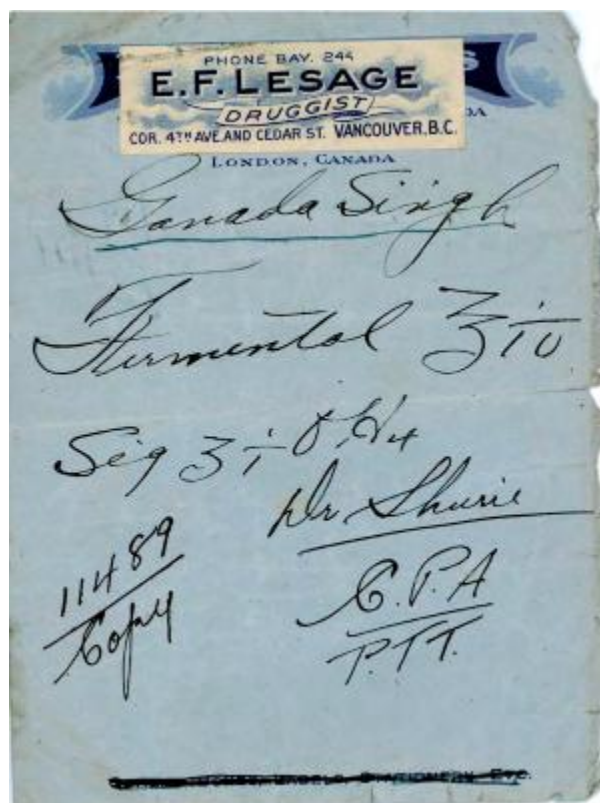 PHONE BAY. 244
E.F. LESAGE
DRUGGIST
COR. 4TH AVE. AND CEDAR ST. VANCOUVER, B.C.
LONDON, CANADA
Ganada Singh
Fermental ℥ iv
Sig ʒ i
Dr Shurie
11489
Copy
C.P.A
P.T.T.